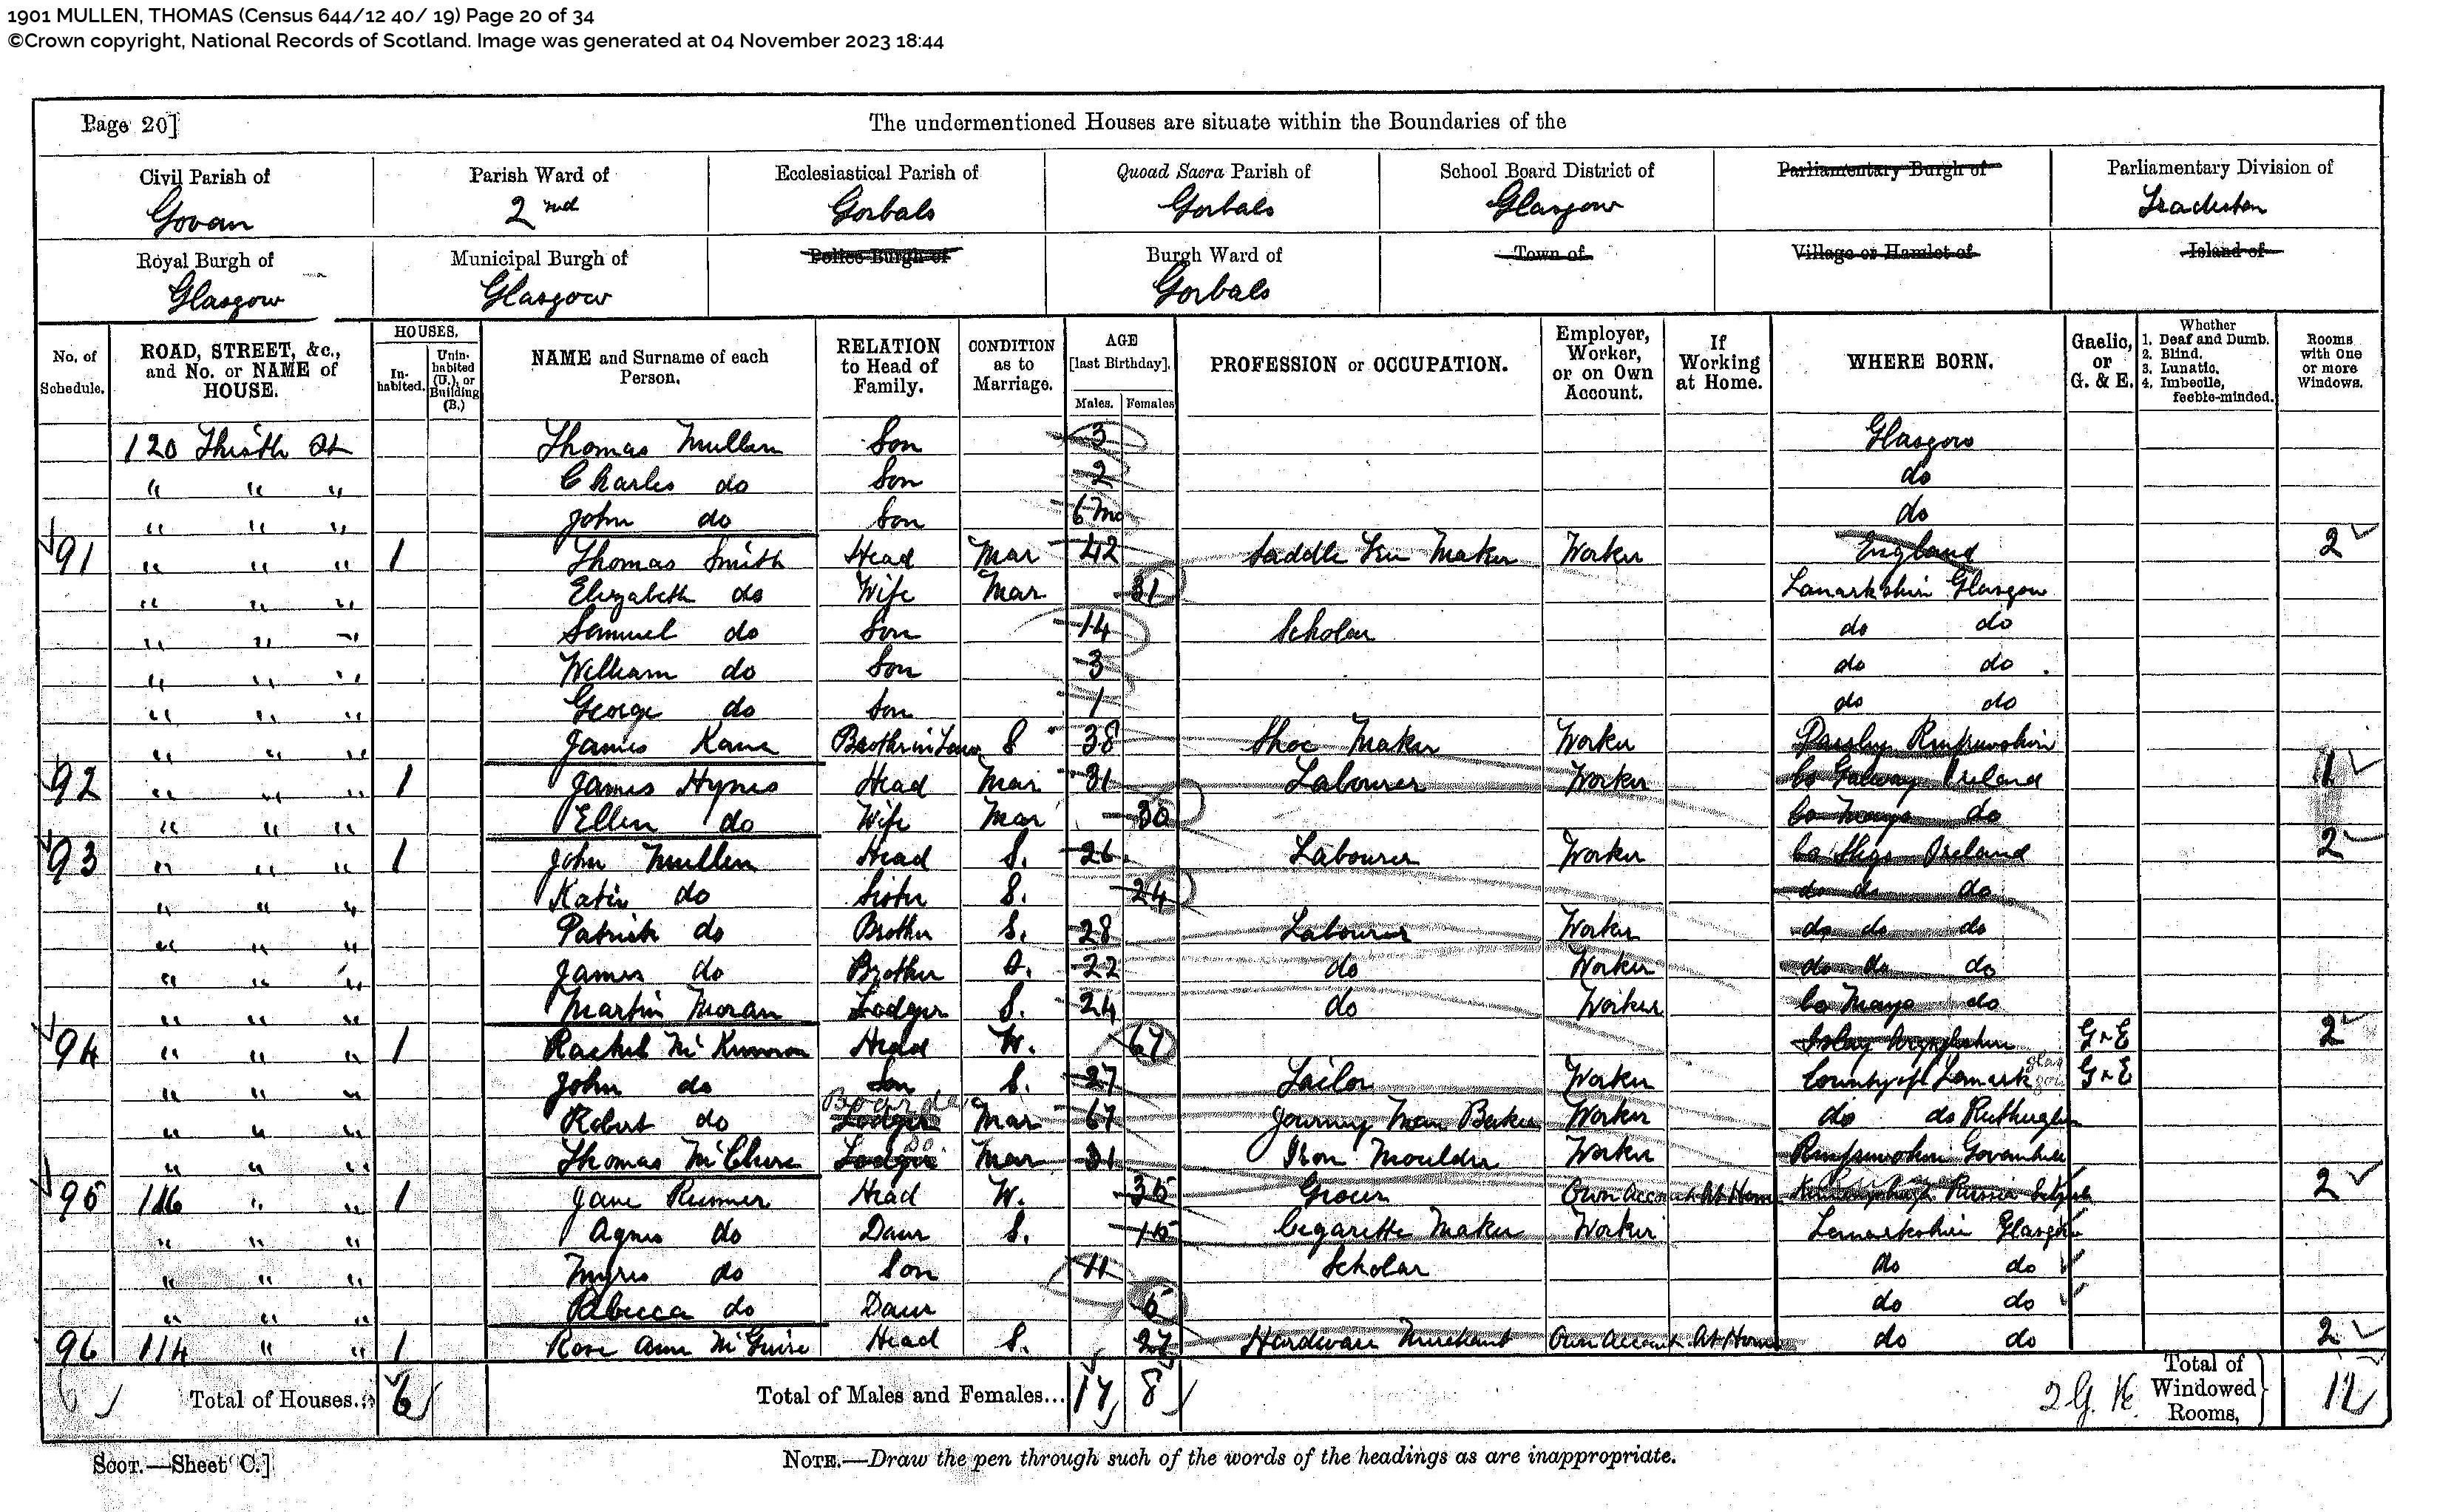 1901 MULLEN, THOMAS (Census 644/12 40/ 19) Page 20 of 34
©Crown copyright, National Records of Scotland. Image was generated at 04 November 2023 18:44
Page 20]
The undermentioned Houses are situate within the Boundaries of the
Civil Parish of Parish Ward of Ecclesiastical Parish of Quoad Sacra Parish of School Board District of Parliamentary Burgh of Parliamentary Division of
Govan 2nd Gorbals Gorbals Glasgow Tradeston
Royal Burgh of Municipal Burgh of Police Burgh of Burgh Ward of Town of Village or Hamlet of Island of
Glasgow Glasgow Gorbals
No. of Schedule. ROAD, STREET, &c., and No. or NAME of HOUSE. HOUSES. Inhabited. Uninhabited (U.), or Building (B.) NAME and Surname of each Person. RELATION to Head of Family. CONDITION as to Marriage. AGE [last Birthday]. Males. Females PROFESSION or OCCUPATION. Employer, Worker, or on Own Account. If Working at Home. WHERE BORN. Gaelic, or G. & E. Whether 1. Deaf and Dumb. 2. Blind. 3. Lunatic. 4. Imbecile, feeble-minded. Rooms with One or more Windows.
120 Thistle St Thomas Mullen Son 3 Glasgow
" " " Charles do Son 2 do
" " " John do Son 6 mo do
91 " " " 1 Thomas Smith Head Mar 42 Saddle Maker Worker England 2
" " " Elizabeth do Wife Mar 31 Lanarkshire Glasgow
" " " Samuel do Son 14 Scholar do do
" " " William do Son 3 do do
" " " George do Son 1 do do
" " " James Kane Brother in Law S 38 Shoe Maker Worker Paisley Renfrewshire
92 " " " 1 James Hynes Head Mar 31 Labourer Worker Co Galway Ireland 1
" " " Ellen do Wife Mar 30 Co Mayo do
93 " " " 1 John Mullen Head S. 26 Labourer Worker Co Sligo Ireland 2
" " " Katie do Sister S. 24 do do do
" " " Patrick do Brother S. 28 Labourer Worker do do do
" " " James do Brother S. 22 do Worker do do do
" " " Martin Moran Lodger S. 24 do Worker Co Mayo do
94 " " " 1 Rachel McKinnon Head W. 67 Islay Argyleshire G & E 2
" " " John do Son S. 27 Tailor Worker County of Lanark Glasgow G & E
" " " Robert do Lodger Boarder Mar 67 Journey Man Baker Worker do do Rutherglen
" " " Thomas McClure Lodger Do Mar 31 Iron Moulder Worker Renfrewshire Govanhill
95 116 " " 1 Jane Head W. 35 Grocer Own Account At Home Russia 2
" " " Agnes do Daur S. 15 Cigarette Maker Worker Lanarkshire Glasgow
" " " Myres do Son 11 Scholar do do
" " " Rebecca do Daur 5 do do
96 114 " " 1 Rose Ann McGuire Head S. 27 Hardware Merchant Own Account At Home do do 2
Total of Houses.. 6 Total of Males and Females... 17 8 2 G. E. Total of Windowed Rooms, 11
SCOT.—Sheet C.]
NOTE.—Draw the pen through such of the words of the headings as are inappropriate.